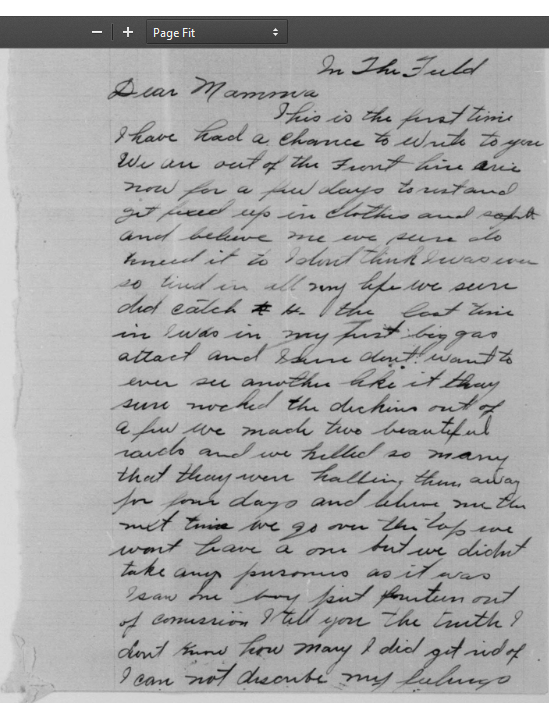 Page Fit
In The Field
Dear Mamma
This is the first time
I have had a chance to write to you
We are out of the Front line
now for a few days to rest and
get fixed up in clothes and
and believe me we sure do
kneed it to I dont think I was ever
so tired in all my life we sure
did catch the last time
in I was in my first big gas
attact and I sure dont want to
ever see another like it thay
sure nocked the dickins out of
a few we made two beautiful
raids and we killed so many
that thay were halling them away
for four days and beleve me the
next time we go over the top we
wont have a one but we didnt
take any prisonus as it was
I saw one boy put fourteen out
of comission I tell you the truth I
dont know how many I did get rid of
I can not discribe my feelings